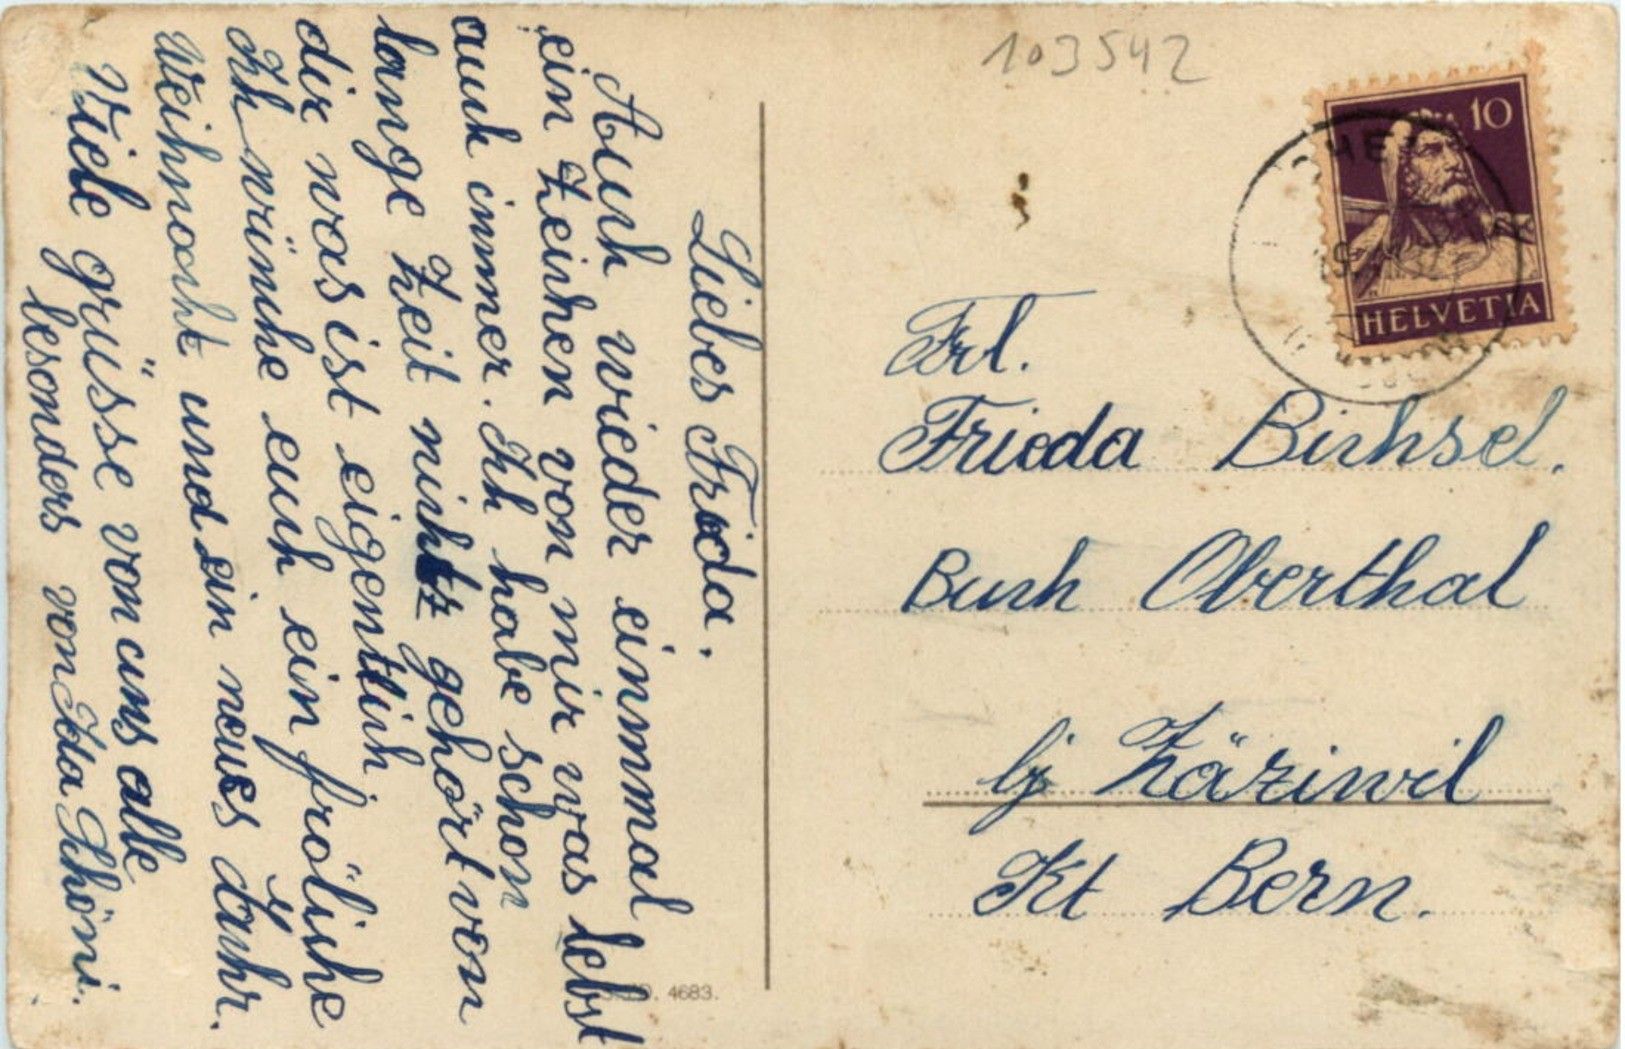 103542
10
HELVETIA
Liebes Frieda.
Auch wieder einmmal
ein Zeichen von mir was lebst
auch immer. Ich habe schon
lange Zeit nichts gehört von
dir was ist eigentlich
Ich wünche euch ein fröliche
Weihnacht und ein neues Jahr.
Viele grüsse von uns alle
besonders von Ida Schöni.
4683.
Frl.
Frieda Bichsel.
Buch Oberthal
bj Zäziwil
Kt Bern.